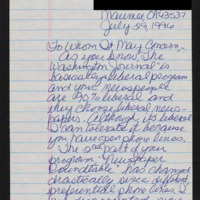 Maumee, OH 43537
July 29, 1996
To Whom It May Concern,
As you know, the
Washington Journal is
basically a liberal program
and your newspeople
are 90% liberal and
they choose liberal news-
papers. Although its liberal
I can tolerate it because
you have open phone lines.
The 2nd part of your
program - Newspaper
Roundtable has changed
drastically since different
preferential phone lines. I